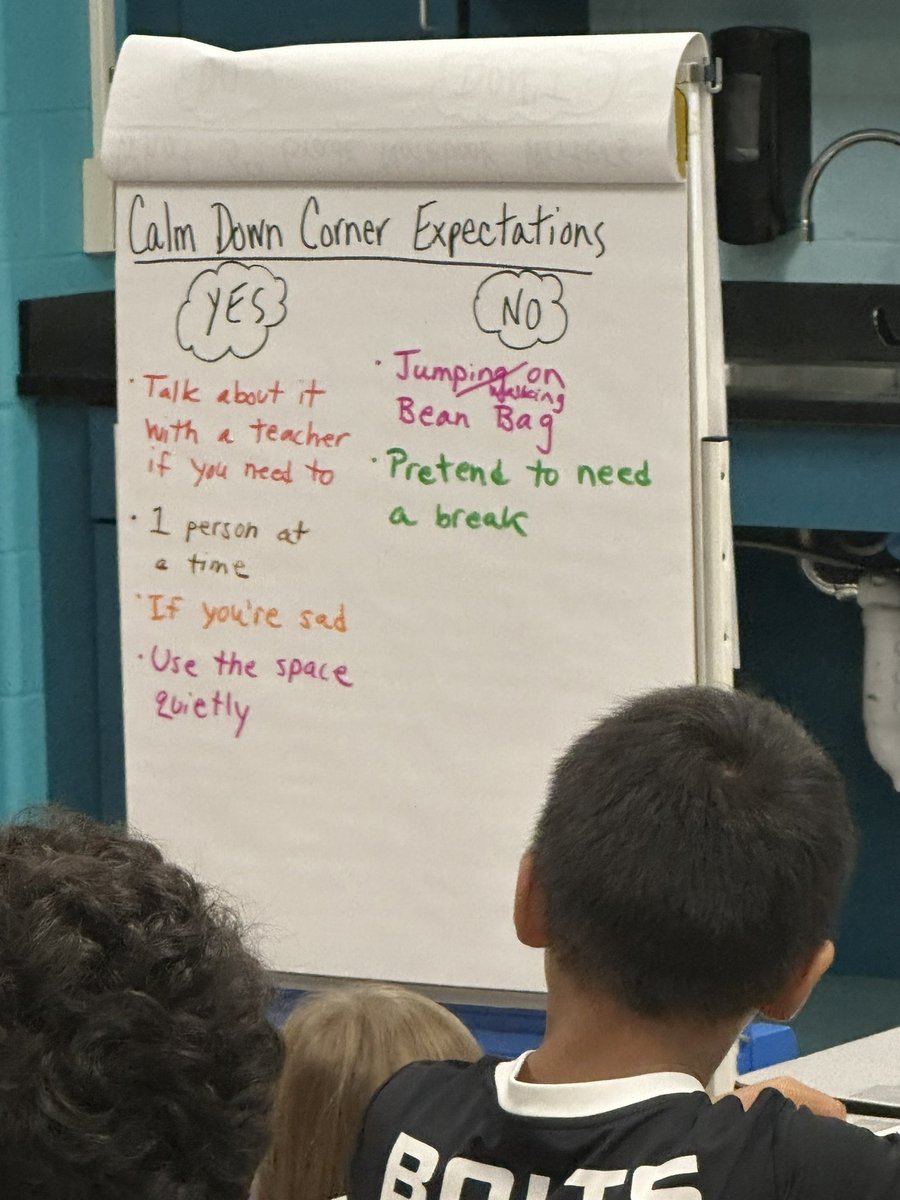 Calm Down Corner Expectations
YES
· Talk about it
with a teacher
if you need to
· 1 person at
a time
· If you're sad
· Use the space
quietly
NO
· Jumping on
walking
Bean Bag
· Pretend to need
a break
BOLTS